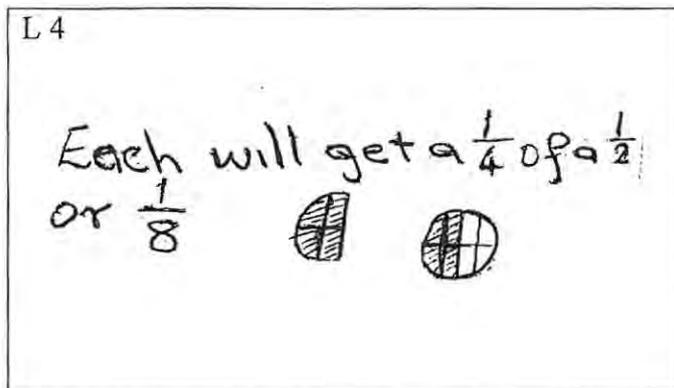 L 4
Each will get a 1/4 of a 1/2
or 1/8